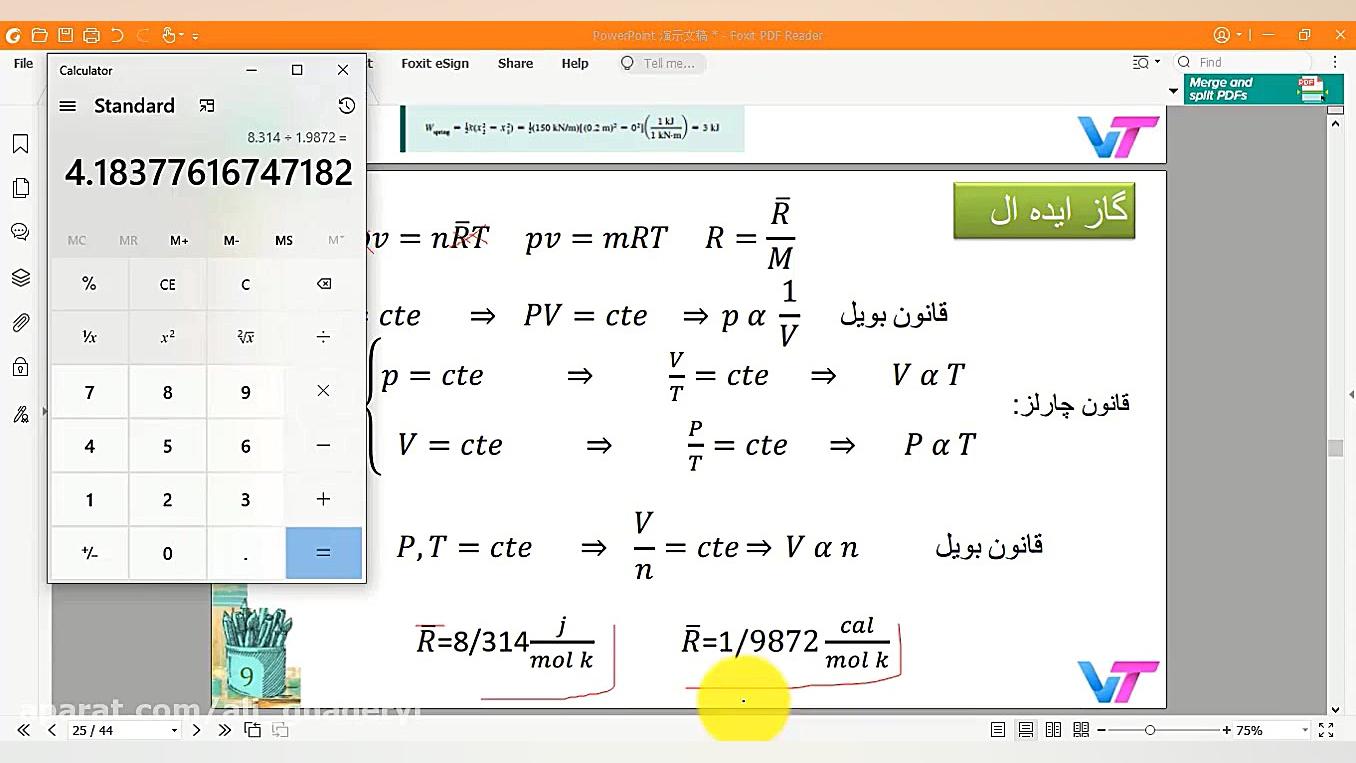 PowerPoint 演示文稿 * - Foxit PDF Reader
File
t
Foxit eSign
Share
Help
Tell me...
Find
Merge and split PDFs
PDF
Calculator
Standard
8.314 ÷ 1.9872 =
4.18377616747182
MC MR M+ M- MS M˅
% CE C
¹/x x² ²√x ÷
7 8 9 ×
4 5 6 −
1 2 3 +
+/− 0 . =
W_spring = ½k(x₂² − x₁²) = ½(150 kN/m)[(0.2 m)² − 0²](1 kJ/1 kN·m) = 3 kJ
VT
گاز ایده ال
pv = nR̅T pv = mRT R = R̅/M
cte ⇒ PV = cte ⇒ p α 1/V قانون بویل
p = cte ⇒ V/T = cte ⇒ V α T
قانون چارلز:
V = cte ⇒ P/T = cte ⇒ P α T
P, T = cte ⇒ V/n = cte ⇒ V α n قانون بویل
R̅=8/314 j/mol k R̅=1/9872 cal/mol k
9
VT
aparat.com/ali_ghaderyi
25 / 44
75%